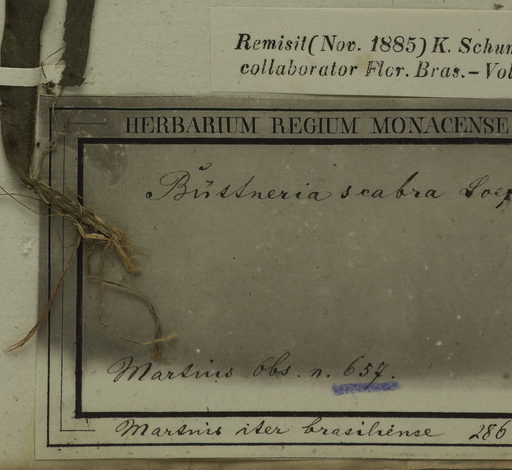 Remisit (Nov. 1885) K. Schum
collaborator Flor. Bras. – Vol
HERBARIUM REGIUM MONACENSE
Büttneria scabra Loe
Martius Obs. n. 657.
Martius iter brasiliense 286